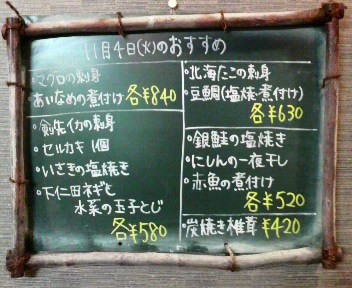 11月4日(火)のおすすめ
・マグロの刺身
・あいなめの煮付け 各¥840
・剣先イカの刺身
・セルカキ 1個
・いさきの塩焼き
・下仁田ネギと
水菜の玉子とじ
各¥580
・北海だこの刺身
・豆鯛(塩焼・煮付け)
各¥630
・銀鮭の塩焼き
・にしんの一夜干し
・赤魚の煮付け
各¥520
・炭焼き椎茸 ¥420